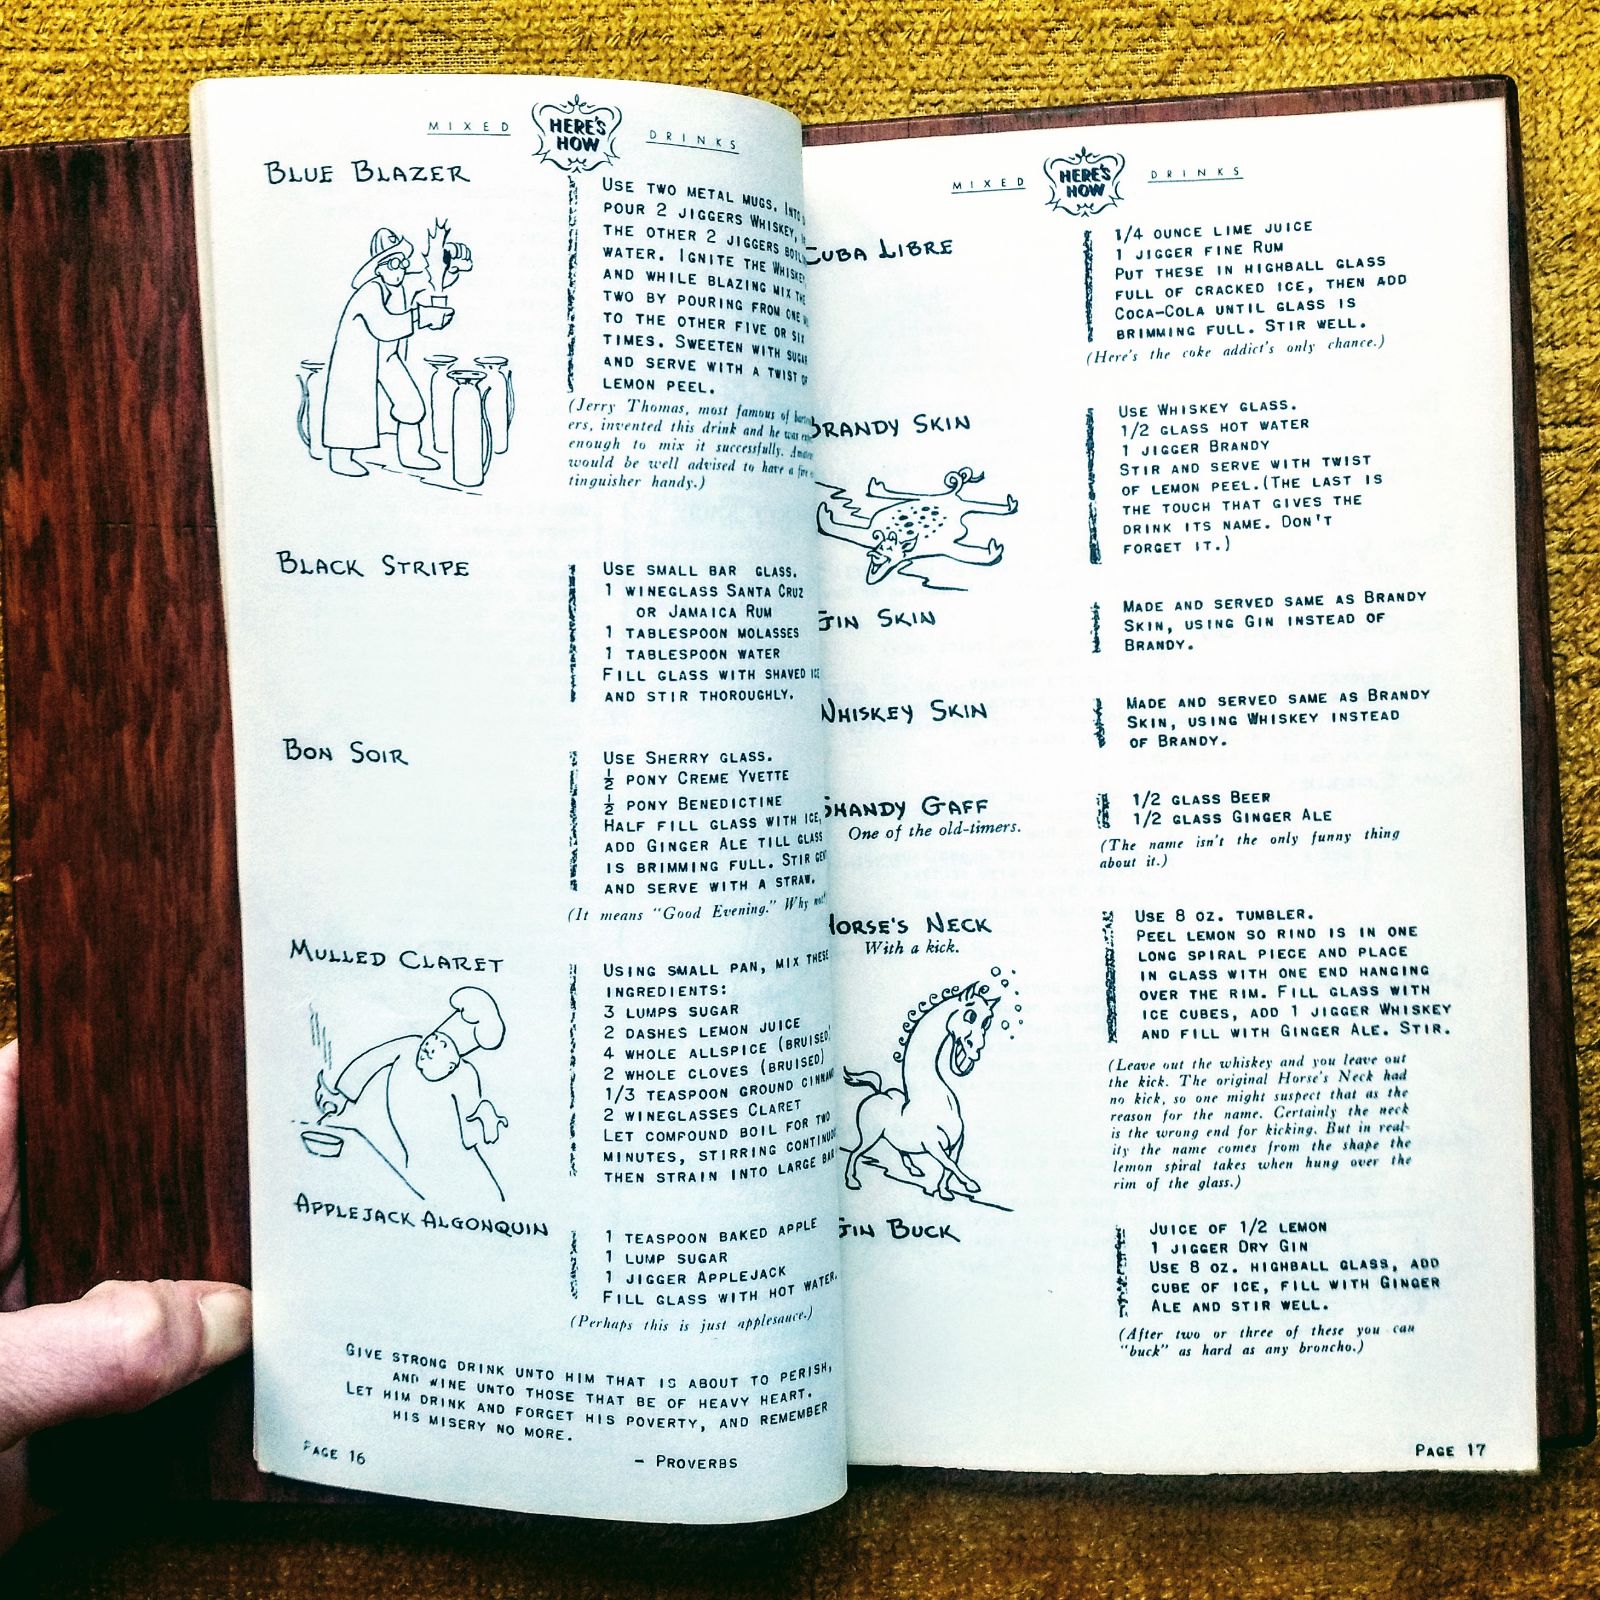 MIXED HERE'S HOW DRINKS
BLUE BLAZER
USE TWO METAL MUGS. INTO
POUR 2 JIGGERS WHISKEY,
THE OTHER 2 JIGGERS
WATER. IGNITE THE WHISKEY
AND WHILE BLAZING MIX THE
TWO BY POURING FROM ONE
TO THE OTHER FIVE OR SIX
TIMES. SWEETEN WITH SUGAR
AND SERVE WITH A TWIST OF
LEMON PEEL.
(Jerry Thomas, most famous of
ers, invented this drink and he was
enough to mix it successfully.
would be well advised to have a fire
tinguisher handy.)
BLACK STRIPE
USE SMALL BAR GLASS.
1 WINEGLASS SANTA CRUZ
OR JAMAICA RUM
1 TABLESPOON MOLASSES
1 TABLESPOON WATER
FILL GLASS WITH SHAVED ICE
AND STIR THOROUGHLY.
BON SOIR
USE SHERRY GLASS.
½ PONY CREME YVETTE
½ PONY BENEDICTINE
HALF FILL GLASS WITH ICE,
ADD GINGER ALE TILL GLASS
IS BRIMMING FULL. STIR
AND SERVE WITH A STRAW.
(It means "Good Evening." Why
MULLED CLARET
USING SMALL PAN, MIX THESE
INGREDIENTS:
3 LUMPS SUGAR
2 DASHES LEMON JUICE
4 WHOLE ALLSPICE (BRUISED)
2 WHOLE CLOVES (BRUISED)
1/3 TEASPOON GROUND
2 WINEGLASSES CLARET
LET COMPOUND BOIL FOR TWO
MINUTES, STIRRING
THEN STRAIN INTO LARGE BAR
APPLEJACK ALGONQUIN
1 TEASPOON BAKED APPLE
1 LUMP SUGAR
1 JIGGER APPLEJACK
FILL GLASS WITH HOT WATER.
(Perhaps this is just applesauce.)
GIVE STRONG DRINK UNTO HIM THAT IS ABOUT TO PERISH,
AND WINE UNTO THOSE THAT BE OF HEAVY HEART.
LET HIM DRINK AND FORGET HIS POVERTY, AND REMEMBER
HIS MISERY NO MORE.
– PROVERBS
PAGE 16
MIXED HERE'S HOW DRINKS
CUBA LIBRE
1/4 OUNCE LIME JUICE
1 JIGGER FINE RUM
PUT THESE IN HIGHBALL GLASS
FULL OF CRACKED ICE, THEN ADD
COCA-COLA UNTIL GLASS IS
BRIMMING FULL. STIR WELL.
(Here's the coke addict's only chance.)
BRANDY SKIN
USE WHISKEY GLASS.
1/2 GLASS HOT WATER
1 JIGGER BRANDY
STIR AND SERVE WITH TWIST
OF LEMON PEEL.(THE LAST IS
THE TOUCH THAT GIVES THE
DRINK ITS NAME. DON'T
FORGET IT.)
GIN SKIN
MADE AND SERVED SAME AS BRANDY
SKIN, USING GIN INSTEAD OF
BRANDY.
WHISKEY SKIN
MADE AND SERVED SAME AS BRANDY
SKIN, USING WHISKEY INSTEAD
OF BRANDY.
SHANDY GAFF
One of the old-timers.
1/2 GLASS BEER
1/2 GLASS GINGER ALE
(The name isn't the only funny thing
about it.)
HORSE'S NECK
With a kick.
USE 8 OZ. TUMBLER.
PEEL LEMON SO RIND IS IN ONE
LONG SPIRAL PIECE AND PLACE
IN GLASS WITH ONE END HANGING
OVER THE RIM. FILL GLASS WITH
ICE CUBES, ADD 1 JIGGER WHISKEY
AND FILL WITH GINGER ALE. STIR.
(Leave out the whiskey and you leave out
the kick. The original Horse's Neck had
no kick, so one might suspect that as the
reason for the name. Certainly the neck
is the wrong end for kicking. But in real-
ity the name comes from the shape the
lemon spiral takes when hung over the
rim of the glass.)
GIN BUCK
JUICE OF 1/2 LEMON
1 JIGGER DRY GIN
USE 8 OZ. HIGHBALL GLASS, ADD
CUBE OF ICE, FILL WITH GINGER
ALE AND STIR WELL.
(After two or three of these you can
"buck" as hard as any broncho.)
PAGE 17